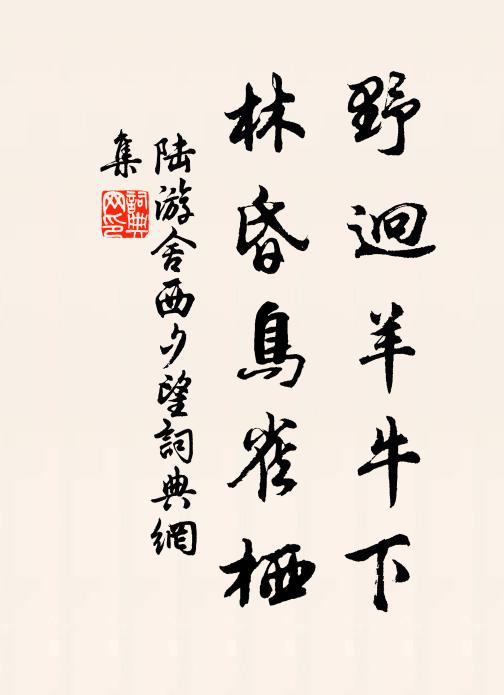 野迥羊牛下
林昏鳥雀栖
陸游舍西夕望詞典網
集
詞典
网印